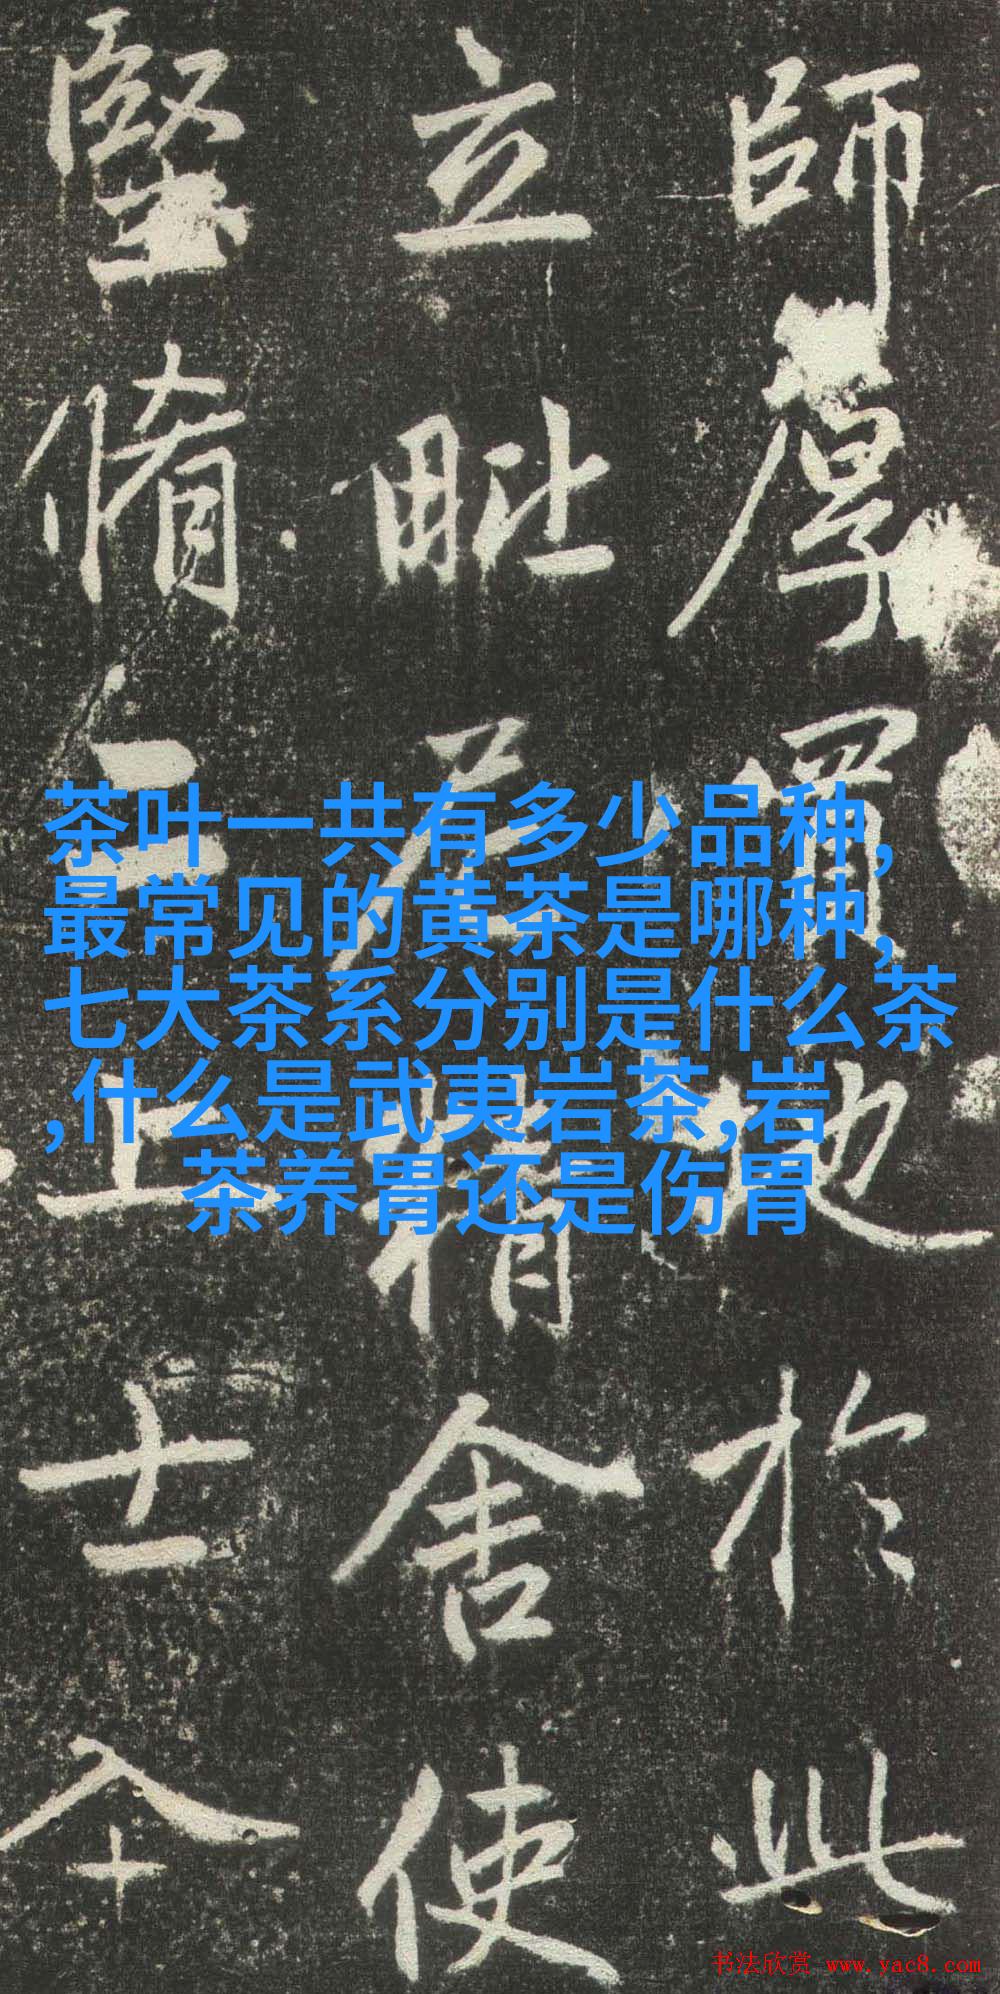 師厚買地於此
立毗尼精舍使
堅脩上士
茶叶一共有多少品种,
最常见的黄茶是哪种,
七大茶系分别是什么茶
,什么是武夷岩茶,岩
茶养胃还是伤胃
书法欣赏 www.yac8.com